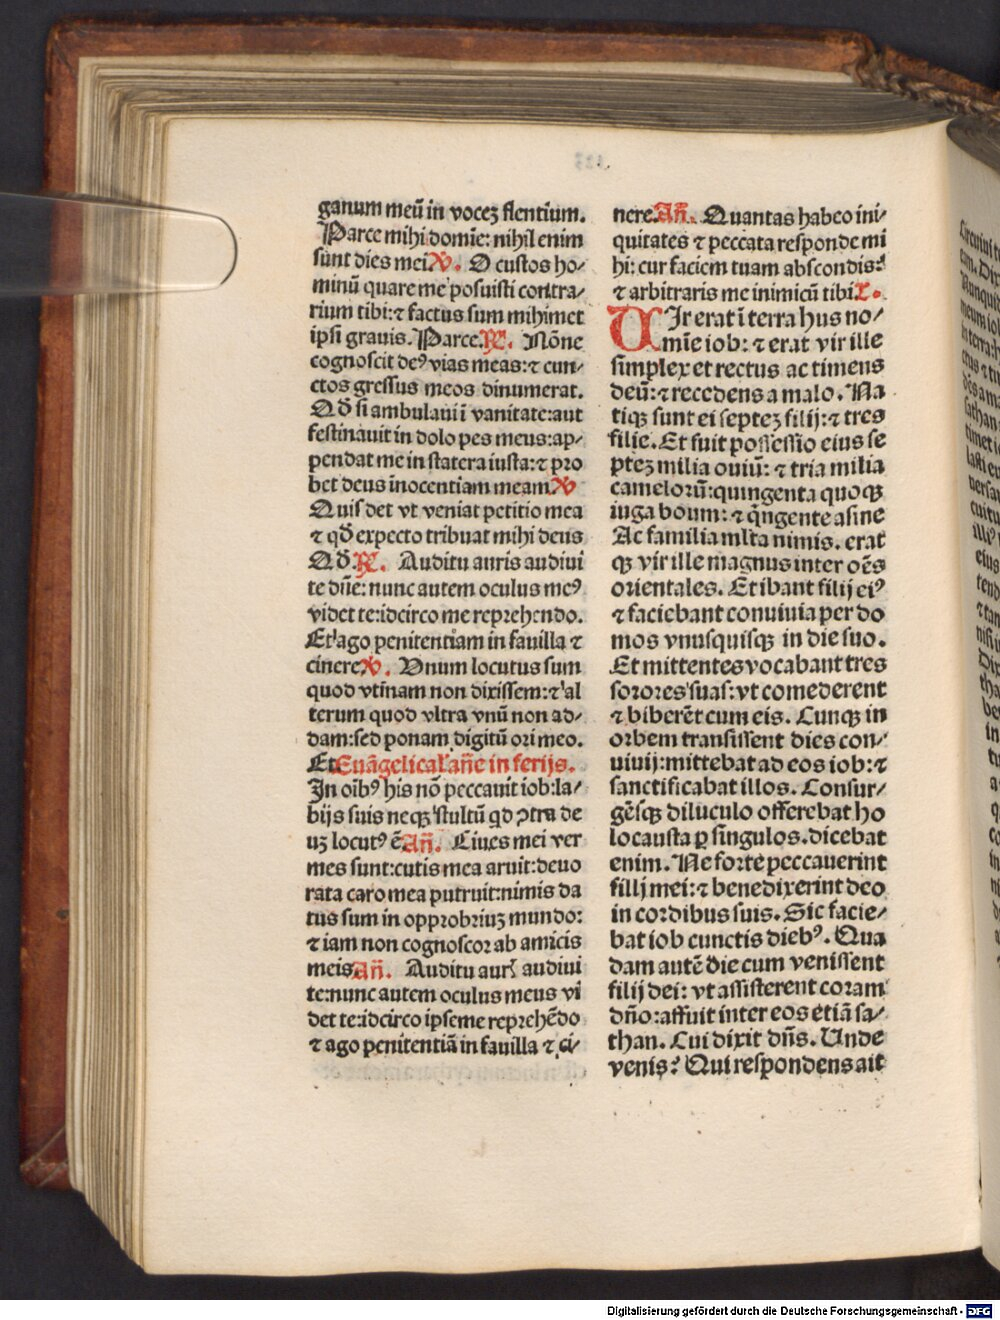 ganum meū in vocez flentium.
Parce mihi domīe: nihil enim
sunt dies mei℣. O custos ho⸗
minū quare me posuisti contra⸗
rium tibi: ⁊ factus sum mihimet
ipsi grauis. Parce.℟. Nōne
cognoscit deꝰ vias meas: ⁊ cun⸗
ctos gressus meos dinumerat.
Qđ si ambulaui ī vanitate: aut
festinauit in dolo pes meus: ap⸗
pendat me in statera iusta: ⁊ pro
bet deus inocentiam meam℣
Quis det vt veniat petitio mea
⁊ qđ expecto tribuat mihi deus
Qđ.℟. Auditu auris audiui
te dn̄e: nunc autem oculus meꝰ
videt te: idcirco me reprehendo.
Et ago penitentiam in fauilla ⁊
cinere℣. Vnum locutus sum
quod vtinam non dixissem: ⁊ al
terum quod vltra vnū non ad⸗
dam: sed ponam digitū ori meo.
Et Euāgelical' an̄e in ferijs.
In oībꝰ his nō peccauit iob: la⸗
bijs suis neqꝫ stultū qđ ꝯtra de
uꝫ locutꝰ ē An̄. Ciues mei ver
mes sunt: cutis mea aruit: deuo
rata caro mea putruit: nimis da
tus sum in opprobriuꝫ mundo:
⁊ iam non cognoscor ab amicis
meis An̄. Auditu aurꝭ audiui
te: nunc autem oculus meus vi
det te: idcirco ipse me reprehēdo
⁊ ago penitentiā in fauilla ⁊ ci⸗
nere. An̄. Quantas habeo ini⸗
quitates ⁊ peccata responde mi
hi: cur faciem tuam abscondis?
⁊ arbitraris me inimicū tibi L.
VIr erat ī terra hus no⸗
mīe iob: ⁊ erat vir ille
simplex et rectus ac timens
deū: ⁊ recedens a malo. Na
tiqꝫ sunt ei septeꝫ filij: ⁊ tres
filie. Et fuit possessio eius se
pteꝫ milia ouiū: ⁊ tria milia
camelorū: quingenta quoqꝫ
iuga boum: ⁊ qngente asine
Ac familia ml̄ta nimis. erat
qꝫ vir ille magnus inter oēs
orientales. Et ibant filij eiꝰ
⁊ faciebant conuiuia per do
mos vnusquisqꝫ in die suo.
Et mittentes vocabant tres
sorores suas: vt comederent
⁊ biberēt cum eis. Cunqꝫ in
orbem transissent dies con⸗
uiuij: mittebat ad eos iob: ⁊
sanctificabat illos. Consur⸗
gēsqꝫ diluculo offerebat ho
locausta ꝑ singulos. dicebat
enim. Ne forte peccauerint
filij mei: ⁊ benedixerint deo
in cordibus suis. Sic facie⸗
bat iob cunctis diebꝰ. Qua
dam autē die cum venissent
filij dei: vt assisterent coram
dn̄o: affuit inter eos etiā sa⸗
than. Cui dixit dn̄s. Unde
venis? Qui respondens ait
Digitalisierung gefördert durch die Deutsche Forschungsgemeinschaft - DFG